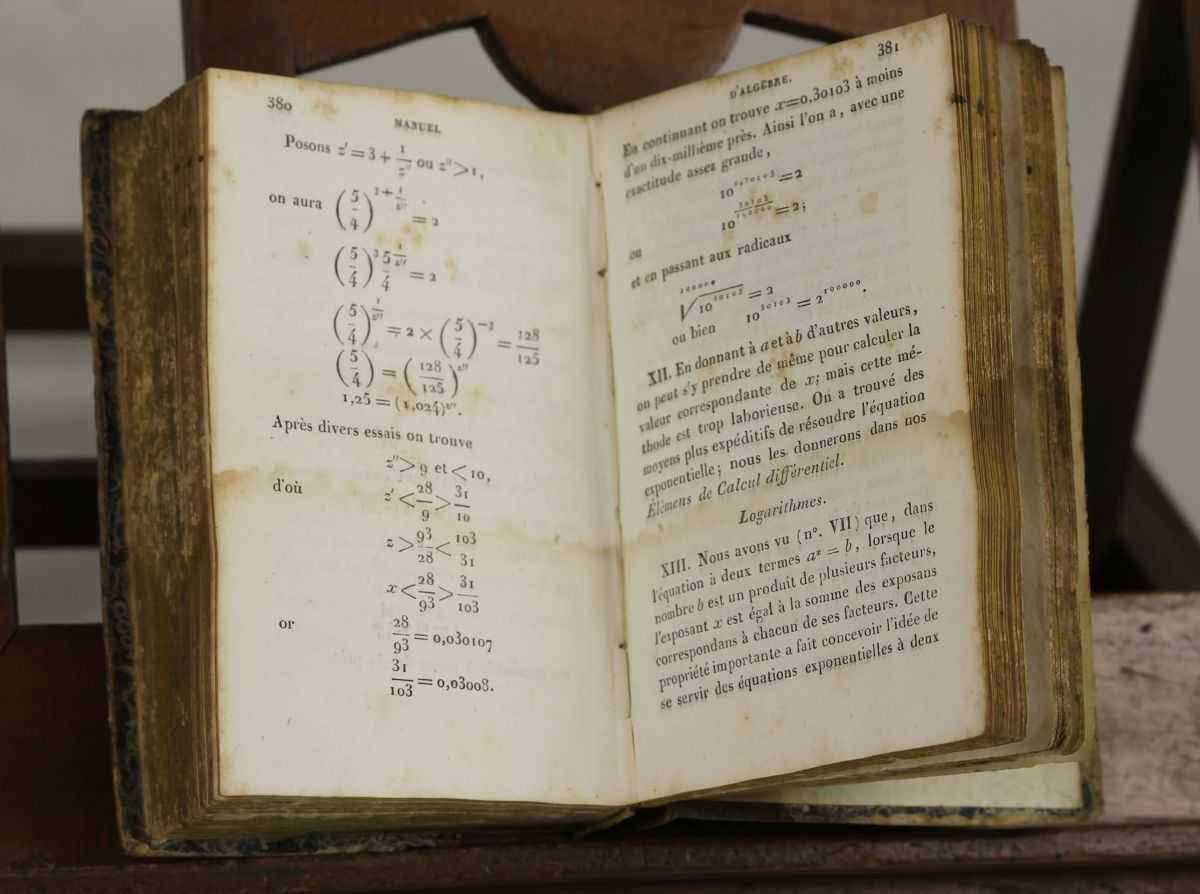 380
MANUEL
Posons z′ = 3 + 1/z″ ou z″ > 1,
on aura (5/4)^(3 + 1/z″) = 2
(5/4)^3 5/4^(1/z″) = 2
(5/4)^(1/z″) = 2 × (5/4)^(−3) = 128/125
(5/4) = (128/125)^z″
1,25 = (1,024)^z″.
Après divers essais on trouve
z″ > 9 et < 10,
d'où z′ < 28/9 > 31/10
z > 93/28 < 103/31
x < 28/93 > 31/103
or 28/93 = 0,030107
31/103 = 0,03008.
381
D'ALGÈBRE.
En continuant on trouve x = 0,30103 à moins
d'un dix-millième près. Ainsi l'on a, avec une
exactitude assez grande,
10^0,30103 = 2
ou 10^(30103/100000) = 2;
et en passant aux radicaux
100000√10^30103 = 2
ou bien 10^30103 = 2^100000.
XII. En donnant à a et à b d'autres valeurs,
on peut s'y prendre de même pour calculer la
valeur correspondante de x; mais cette mé-
thode est trop laborieuse. On a trouvé des
moyens plus expéditifs de résoudre l'équation
exponentielle; nous les donnerons dans nos
Élémens de Calcul différentiel.
Logarithmes.
XIII. Nous avons vu (n°. VII) que, dans
l'équation à deux termes a^x = b, lorsque le
nombre b est un produit de plusieurs facteurs,
l'exposant x est égal à la somme des exposans
correspondans à chacun de ses facteurs. Cette
propriété importante a fait concevoir l'idée de
se servir des équations exponentielles à deux